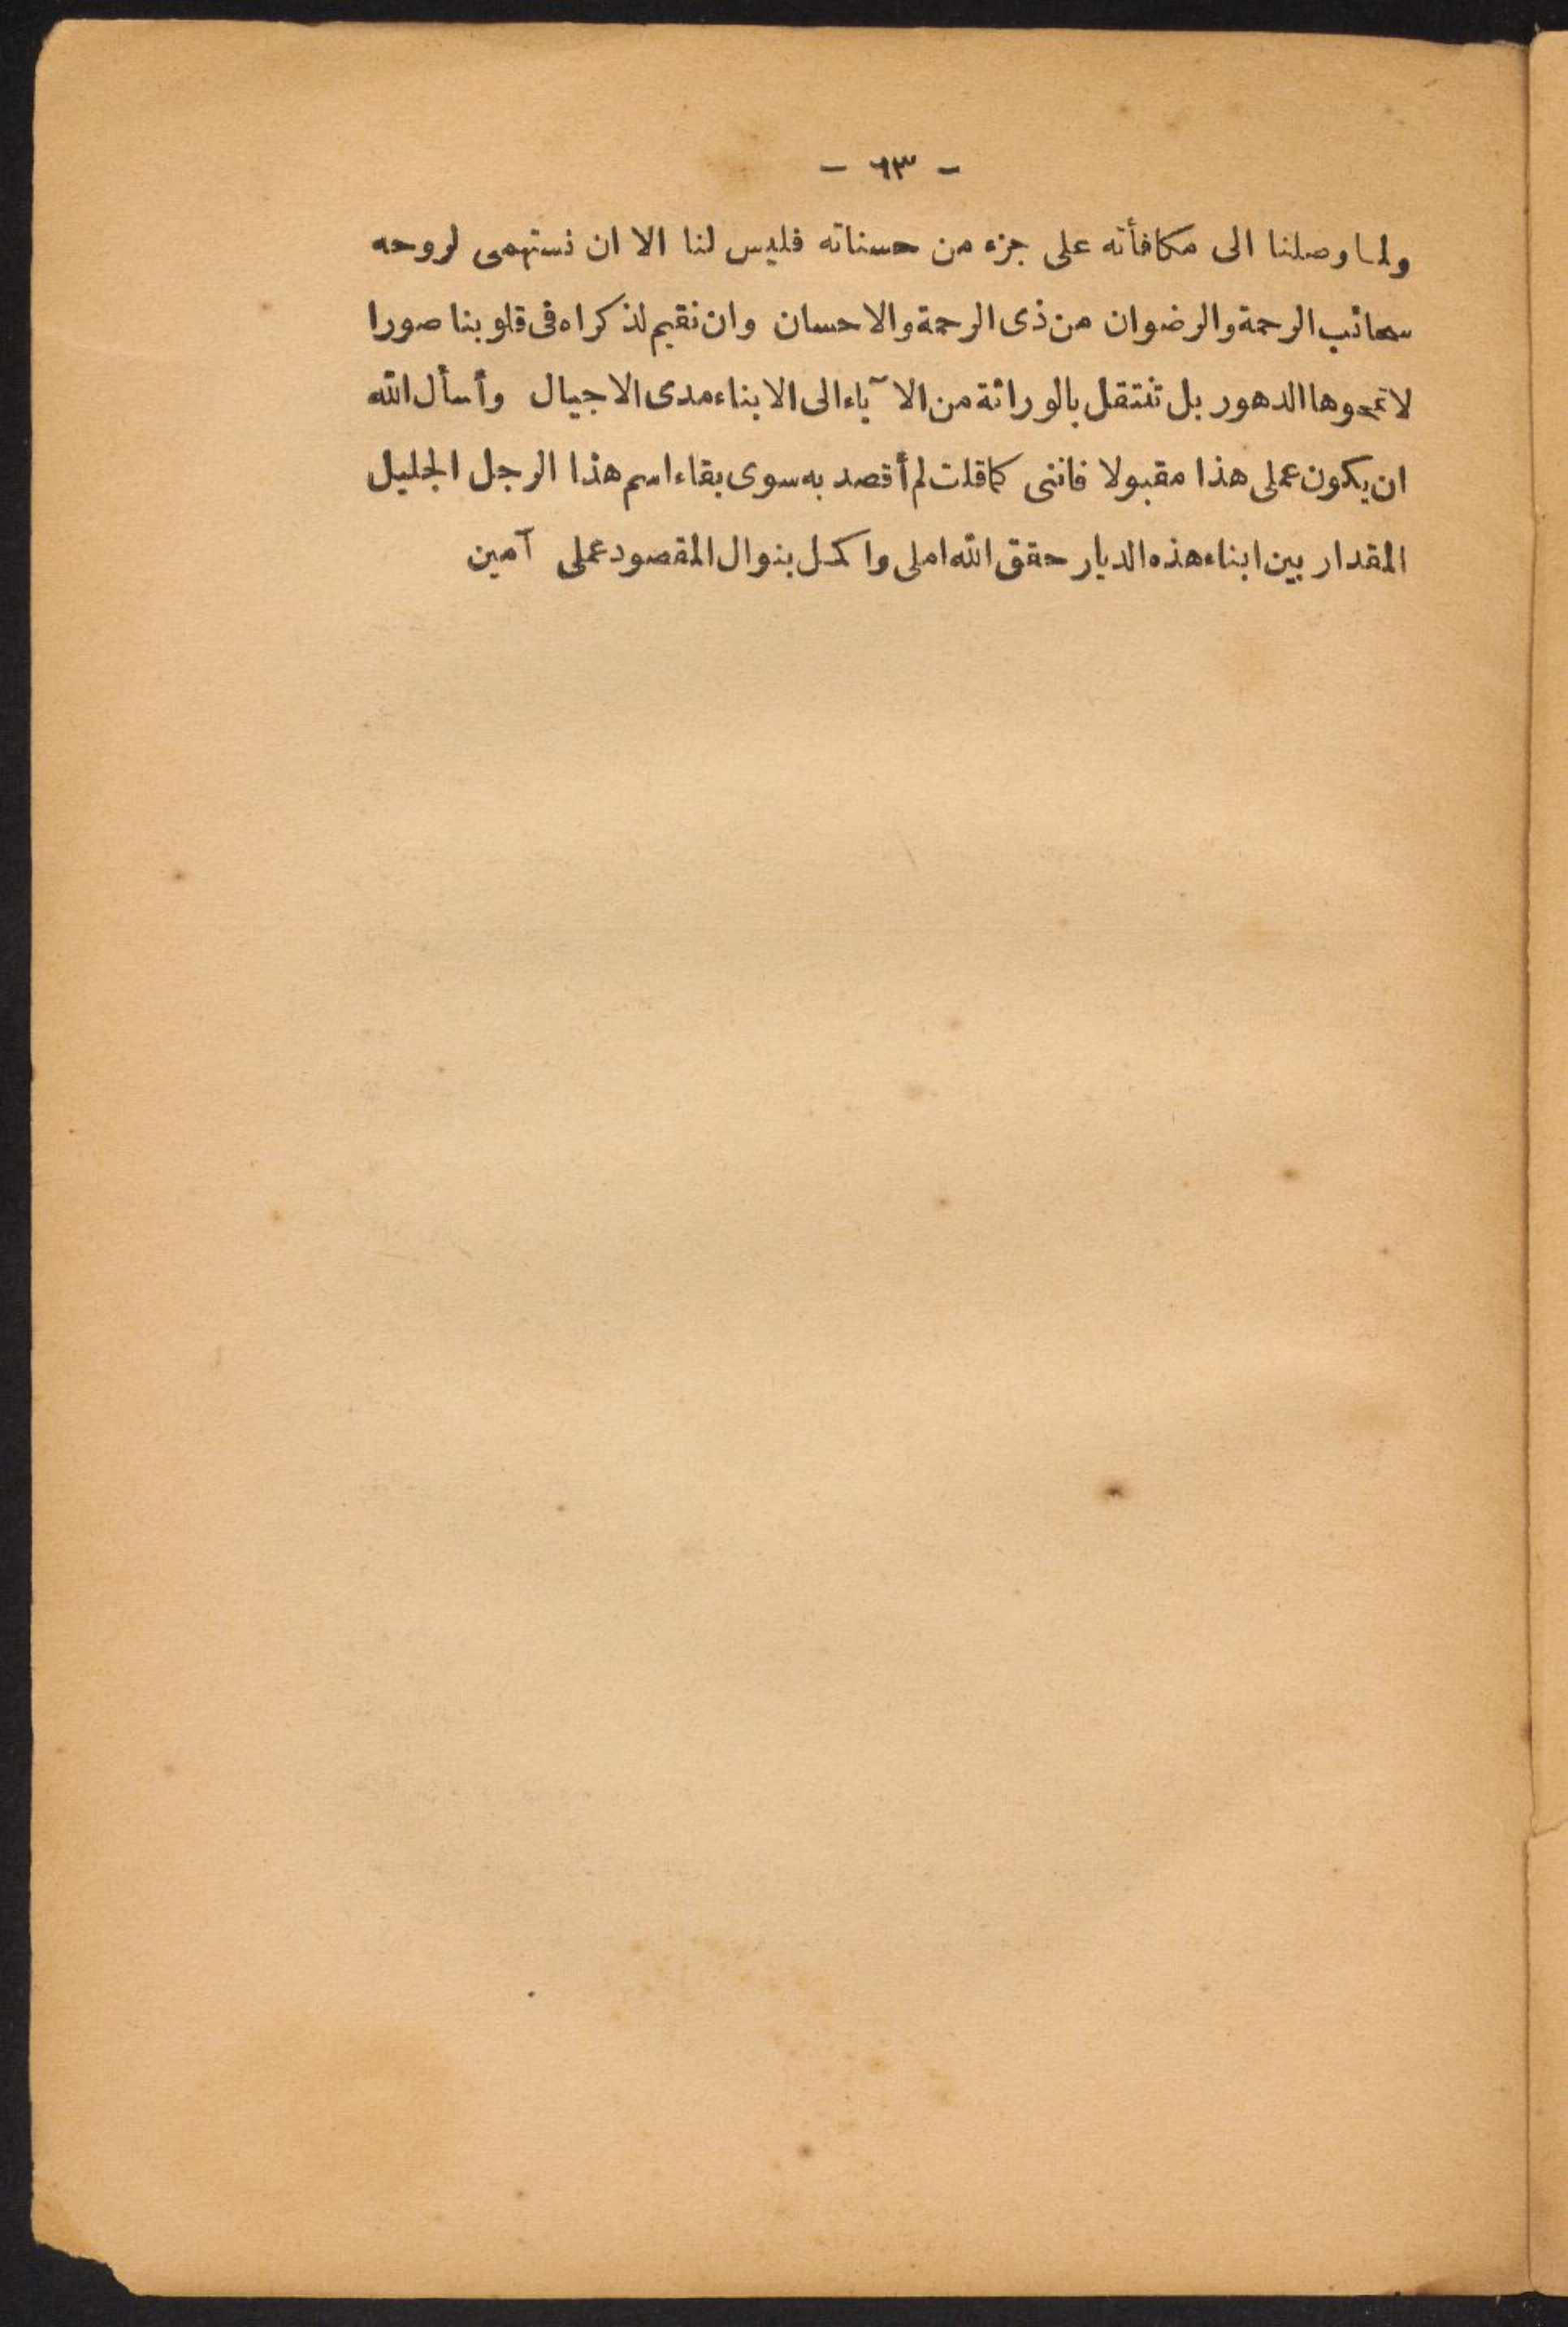 - ٦٣ -
ولما وصلنا الى مكافأته على جزء من حسناته فليس لنا الا ان نستهمى لروحه
سحائب الرحمة والرضوان من ذى الرحمة والاحسان وان نقيم لذكراه فى قلوبنا صورا
لا تمحوها الدهور بل تنتقل بالوراثة من الآباء الى الابناء مدى الاجيال وأسأل الله
ان يكون عملى هذا مقبولا فاننى كما قلت لم أقصد به سوى بقاء اسم هذا الرجل الجليل
المقدار بين ابناء هذه الديار حقق الله املى واكمل بنوال المقصود عملى آمين